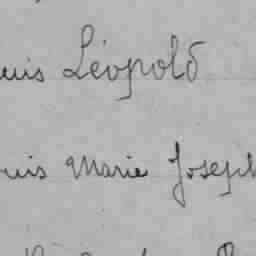 uis Léopold
uis Marie Joseph